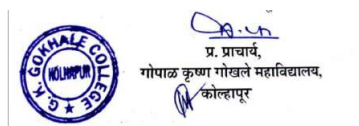 G. K. GOKHALE COLLEGE
KOLHAPUR
प्र. प्राचार्य,
गोपाळ कृष्ण गोखले महाविद्यालय,
कोल्हापूर